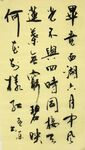 畢竟西湖六月中風
光不與四時同接天
蓮葉無窮碧映日
荷花別樣紅